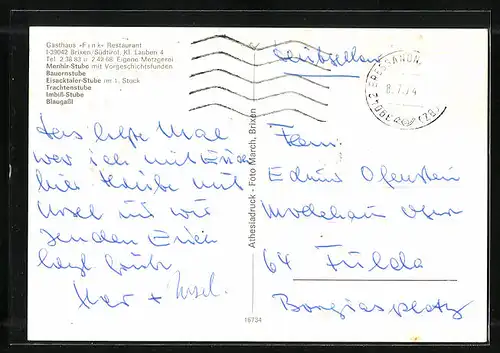 Gasthaus »Fink« Restaurant
I-39042 Brixen/Südtirol, Kl. Lauben 4
Tel. 2 38 83 u. 2 48 68 Eigene Metzgerei
Menhir-Stube mit Vorgeschichtsfunden
Bauernstube
Eisacktaler-Stube im 1. Stock
Trachtenstube
Imbiß-Stube
Blaugaßl
39042 BRESSANONE
8.7.74
(BZ)
Das letzte Mal
war ich mit Euch
hier. Heute mit
Ursel und wir
senden Euch
herzl. Grüße
+ Ursel.
Athesiadruck - Foto March, Brixen
Fam.
Modehaus
64 Fulda
Borgiasplatz
16734